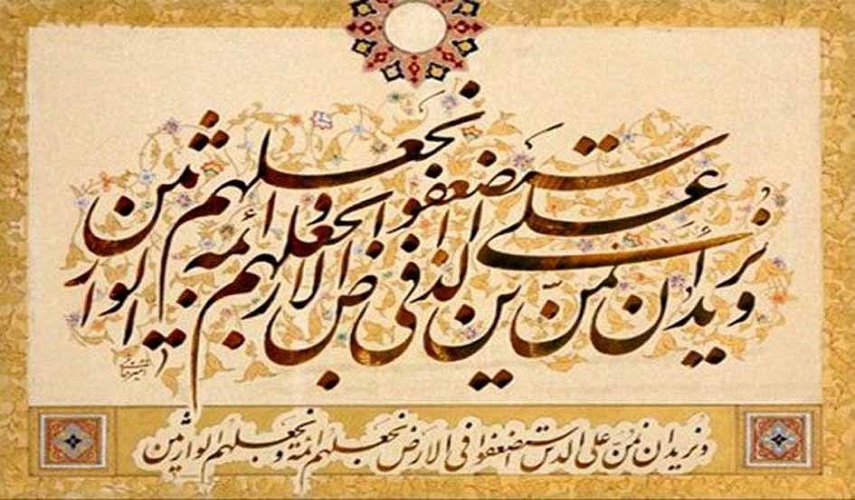 و نرید ان نمنّ علی الذین استضعفوا فی الارض و نجعلهم ائمه و نجعلهم الوارثین
و نرید ان نمنّ علی الذین استضعفوا فی الارض نجعلهم ائمة و نجعلهم الوارثین